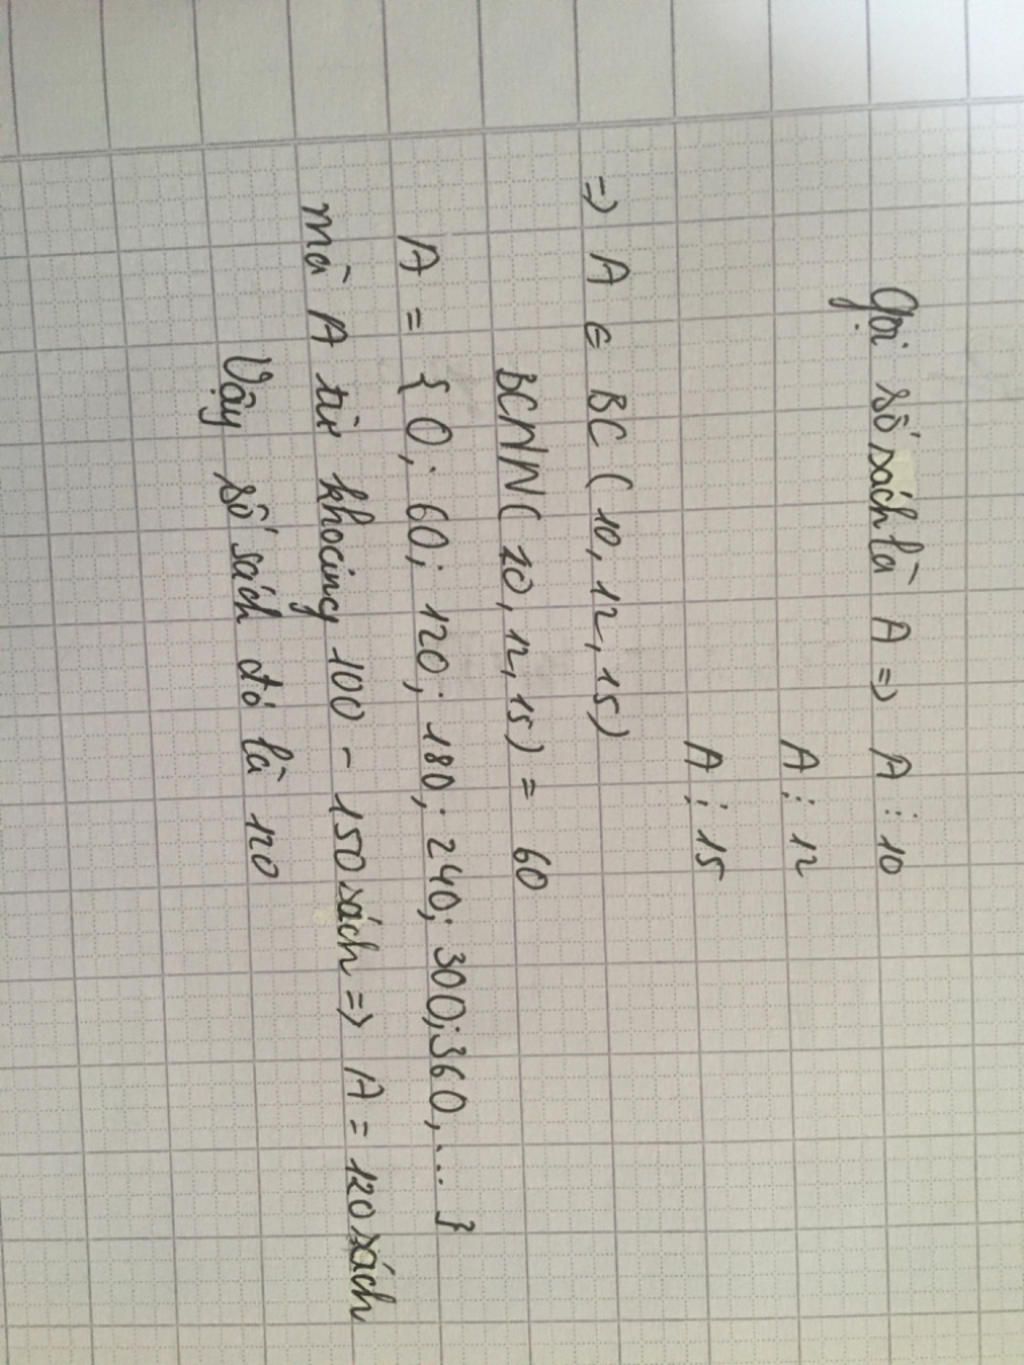 Gọi số sách là A => A ⋮ 10
A ⋮ 12
A ⋮ 15
=> A ∈ BC ( 10, 12, 15)
BCNN ( 10, 12, 15) = 60
A = { 0; 60; 120; 180; 240; 300; 360, ... }
mà A từ khoảng 100 - 150 sách => A = 120 sách
Vậy số sách đó là 120